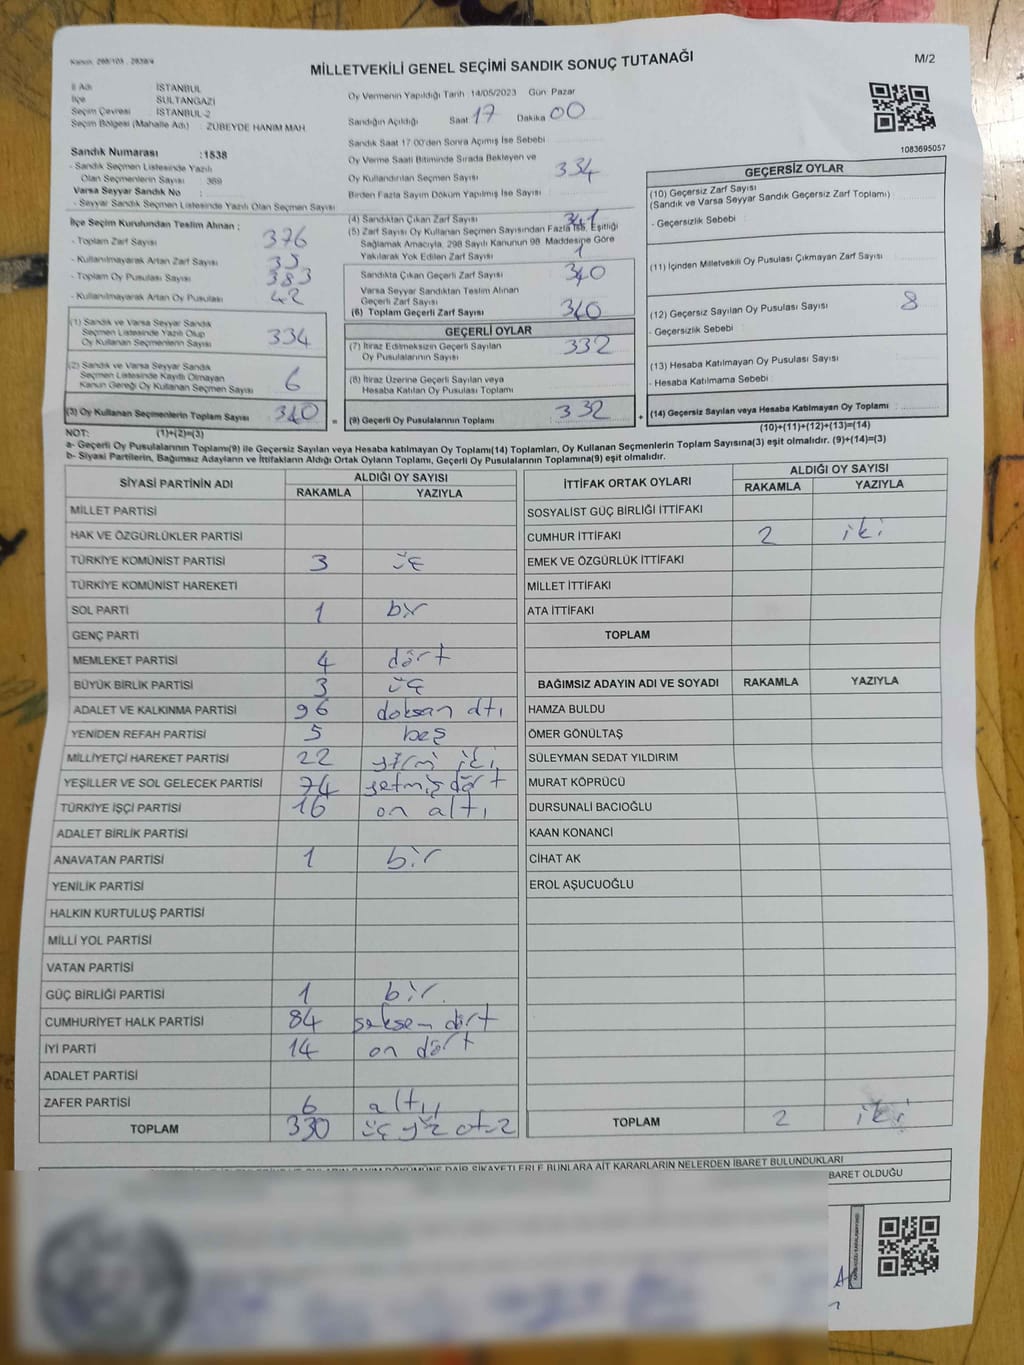 Kanun: 298/105 , 2839/4
MİLLETVEKİLİ GENEL SEÇİMİ SANDIK SONUÇ TUTANAĞI
M/2
İl Adı : İSTANBUL
İlçe : SULTANGAZİ
Seçim Çevresi : İSTANBUL-2
Seçim Bölgesi (Mahalle Adı) : ZÜBEYDE HANIM MAH
Oy Vermenin Yapıldığı Tarih :14/05/2023 Gün: Pazar
Sandığın Açıldığı Saat 17 Dakika 00
Sandık Saat 17:00'den Sonra Açımış İse Sebebi :
Oy Verme Saati Bitiminde Sırada Bekleyen ve
Oy Kullandırılan Seçmen Sayısı : 334
Birden Fazla Sayım Döküm Yapılmış İse Sayısı :
1083695057
Sandık Numarası :1538
- Sandık Seçmen Listesinde Yazılı
Olan Seçmenlerin Sayısı : 369
Varsa Seyyar Sandık No :
- Seyyar Sandık Seçmen Listesinde Yazılı Olan Seçmen Sayısı :
İlçe Seçim Kurulundan Teslim Alınan :
- Toplam Zarf Sayısı : 376
- Kullanılmayarak Artan Zarf Sayısı : 35
- Toplam Oy Pusulası Sayısı : 383
- Kullanılmayarak Artan Oy Pusulası : 42
(1) Sandık ve Varsa Seyyar Sandık
Seçmen Listesinde Yazılı Olup
Oy Kullanan Seçmenlerin Sayısı : 334
(2) Sandık ve Varsa Seyyar Sandık
Seçmen Listesinde Kayıtlı Olmayan
Kanun Gereği Oy Kullanan Seçmen Sayısı : 6
(3) Oy Kullanan Seçmenlerin Toplam Sayısı : 340 =
(4) Sandıktan Çıkan Zarf Sayısı : 341
(5) Zarf Sayısı Oy Kullanan Seçmen Sayısından Fazla İse, Eşitliği
Sağlamak Amacıyla, 298 Sayılı Kanunun 98. Maddesine Göre
Yakılarak Yok Edilen Zarf Sayısı : 1
Sandıkta Çıkan Geçerli Zarf Sayısı : 340
Varsa Seyyar Sandıktan Teslim Alınan
Geçerli Zarf Sayısı :
(6) Toplam Geçerli Zarf Sayısı : 340
GEÇERLİ OYLAR
(7) İtiraz Edilmeksizin Geçerli Sayılan
Oy Pusulalarının Sayısı : 332
(8) İtiraz Üzerine Geçerli Sayılan veya
Hesaba Katılan Oy Pusulası Toplamı :
(9) Geçerli Oy Pusulalarının Toplamı : 332 +
GEÇERSİZ OYLAR
(10) Geçersiz Zarf Sayısı
(Sandık ve Varsa Seyyar Sandık Geçersiz Zarf Toplamı) :
- Geçersizlik Sebebi :
(11) İçinden Milletvekili Oy Pusulası Çıkmayan Zarf Sayısı :
(12) Geçersiz Sayılan Oy Pusulası Sayısı : 8
- Geçersizlik Sebebi :
(13) Hesaba Katılmayan Oy Pusulası Sayısı :
- Hesaba Katılmama Sebebi :
(14) Geçersiz Sayılan veya Hesaba Katılmayan Oy Toplamı :
NOT: (1)+(2)=(3)
(10)+(11)+(12)+(13)=(14)
a- Geçerli Oy Pusulalarının Toplamı(9) ile Geçersiz Sayılan veya Hesaba katılmayan Oy Toplamı(14) Toplamları, Oy Kullanan Seçmenlerin Toplam Sayısına(3) eşit olmalıdır. (9)+(14)=(3)
b- Siyasi Partilerin, Bağımsız Adayların ve İttifakların Aldığı Ortak Oyların Toplamı, Geçerli Oy Pusulalarının Toplamına(9) eşit olmalıdır.
SİYASİ PARTİNİN ADI ALDIĞI OY SAYISI
RAKAMLA YAZIYLA
MİLLET PARTİSİ
HAK VE ÖZGÜRLÜKLER PARTİSİ
TÜRKİYE KOMÜNİST PARTİSİ 3 üç
TÜRKİYE KOMÜNİST HAREKETİ
SOL PARTİ 1 bir
GENÇ PARTİ
MEMLEKET PARTİSİ 4 dört
BÜYÜK BİRLİK PARTİSİ 3 üç
ADALET VE KALKINMA PARTİSİ 96 doksan altı
YENİDEN REFAH PARTİSİ 5 beş
MİLLİYETÇİ HAREKET PARTİSİ 22 yirmi iki
YEŞİLLER VE SOL GELECEK PARTİSİ 74 yetmiş dört
TÜRKİYE İŞÇİ PARTİSİ 16 on altı
ADALET BİRLİK PARTİSİ
ANAVATAN PARTİSİ 1 bir
YENİLİK PARTİSİ
HALKIN KURTULUŞ PARTİSİ
MİLLİ YOL PARTİSİ
VATAN PARTİSİ
GÜÇ BİRLİĞİ PARTİSİ 1 bir
CUMHURİYET HALK PARTİSİ 84 seksen dört
İYİ PARTİ 14 on dört
ADALET PARTİSİ
ZAFER PARTİSİ 6 altı
TOPLAM 330 üç yüz otuz
İTTİFAK ORTAK OYLARI ALDIĞI OY SAYISI
RAKAMLA YAZIYLA
SOSYALİST GÜÇ BİRLİĞİ İTTİFAKI
CUMHUR İTTİFAKI 2 iki
EMEK VE ÖZGÜRLÜK İTTİFAKI
MİLLET İTTİFAKI
ATA İTTİFAKI
TOPLAM
BAĞIMSIZ ADAYIN ADI VE SOYADI RAKAMLA YAZIYLA
HAMZA BULDU
ÖMER GÖNÜLTAŞ
SÜLEYMAN SEDAT YILDIRIM
MURAT KÖPRÜCÜ
DURSUNALİ BACIOĞLU
KAAN KONANCİ
CİHAT AK
EROL AŞUCUOĞLU
TOPLAM 2 iki
DÖKÜMÜNE DAİR ŞİKAYETLERLE BUNLARA AİT KARARLARIN NELERDEN İBARET BULUNDUKLARI
İBARET OLDUĞU